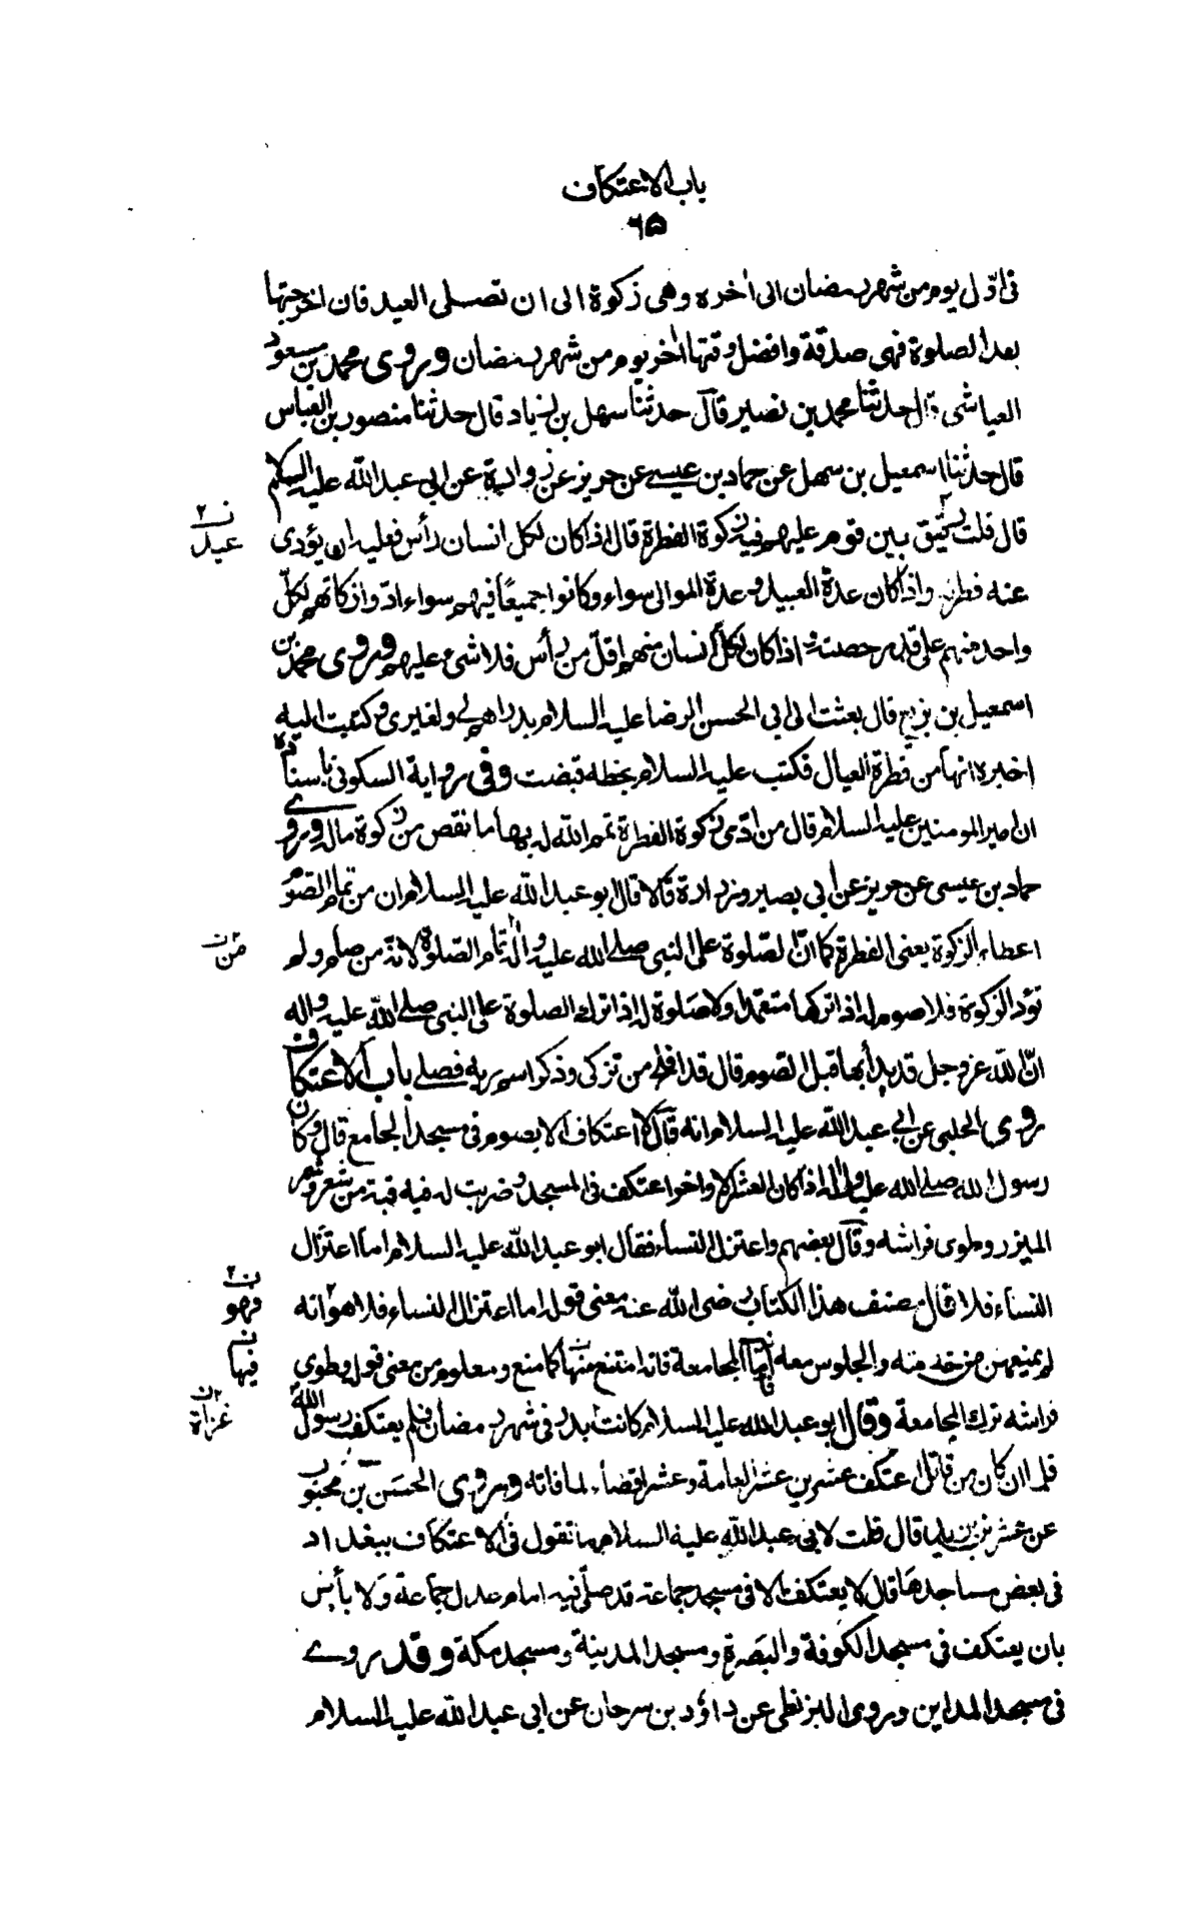 باب الاعتكاف
٦٥
فى اوّل يوم من شهر رمضان الى اخره وهى زكوة الى ان تصلى العيد فان اخرجتها
بعد الصلوة فهى صدقة وافضل وقتها اخر يوم من شهر رمضان وروى محمد بن مسعود
العياشى قال حدثنا محمد بن نصير قال حدثنا سهل بن زياد قال حدثنا منصور بن العباس
قال حدثنا اسمعيل بن سهل عن حماد بن عيسى عن حريز عن زرارة عن ابى عبد الله عليه السلام
قال قلت رقيق بين قوم عليهم فيه زكوة الفطرة قال اذا كان لكل انسان رأس فعليه ان يؤدى
ن٢
عبد
عنه فطرته واذا كان عدة العبيد وعدة الموالى سواء وكانوا جميعًا فيهم سواء ادوا زكاتهم لكلّ
واحد منهم على قدر حصته و اذا كان لكل انسان منهم اقلّ من رأس فلا شىء عليهم وروى محمد بن
اسمعيل بن بزيع قال بعثت الى ابى الحسن الرضا عليه السلام بدراهم لى ولغيرى وكتبت اليه
اخبره انها من فطرة العيال فكتب عليه السلام بخطه قبضت وفى رواية السكونى باسناده
ان امير المومنين عليه السلام قال من ادّى زكوة الفطرة تمم الله له بها ما نقص من زكوة ماله وروى
حماد بن عيسى عن حريز عن ابى بصير وزرارة قالا قال ابو عبد الله عليه السلام ان من تمام الصوم
اعطاء الزكوة يعنى الفطرة كما انّ الصلوة على النبى صلى الله عليه واله تمام الصلوة لانه من صام ولم
من ن
تؤد الزكوة فلا صوم له اذا تركها متعمدا ولا صلوة له اذا ترك الصلوة على النبى صلى الله عليه واله
انّ الله عز وجل قد بدأ بها قبل الصوم قال قد افلح من تزكى وذكر اسم ربه فصلى باب الاعتكاف
روى الحلبى عن ابى عبد الله عليه السلام انه قال لا اعتكاف الا بصوم فى مسجد الجامع قال وكان
رسول الله صلى الله عليه واله اذا كان العشر الاواخر اعتكف فى المسجد وضربت له فيه قبة من شعر وشمر
الميزر وطوى فراشه وقال بعضهم واعتزل النساء فقال ابو عبد الله عليه السلام اما اعتزال
النساء فلا قال مصنف هذا الكتاب رضى الله عنه معنى قوله اما اعتزال النساء فلا هو انه
ن٢
فهو
لم يمنعهن من خدمته والجلوس معه فاما المجامعة فانه امتنع منها كما منع ومعلوم من معنى قوله وطوى
ن
فيها
فراشه ترك المجامعة وقال ابو عبد الله عليه السلام كانت بدر فى شهر رمضان فلم يعتكف رسول الله
ن٢
غزاة
فلما ان كان من قابل اعتكف عشرين عشرا لعامه وعشرا قضاء لما فاته وروى الحسن بن محبوب
عن عمر بن يزيد قال قلت لابى عبد الله عليه السلام ما تقول فى الاعتكاف ببغداد
فى بعض مساجدها قال لا يعتكف الا فى مسجد جماعة قد صلّى فيه امام عدل جماعة ولا بأس
بان يعتكف فى مسجد الكوفة والبصرة ومسجد المدينة ومسجد مكة وقد روى
فى مسجد المداين وروى البزنطى عن داؤد بن سرحان عن ابى عبد الله عليه السلام